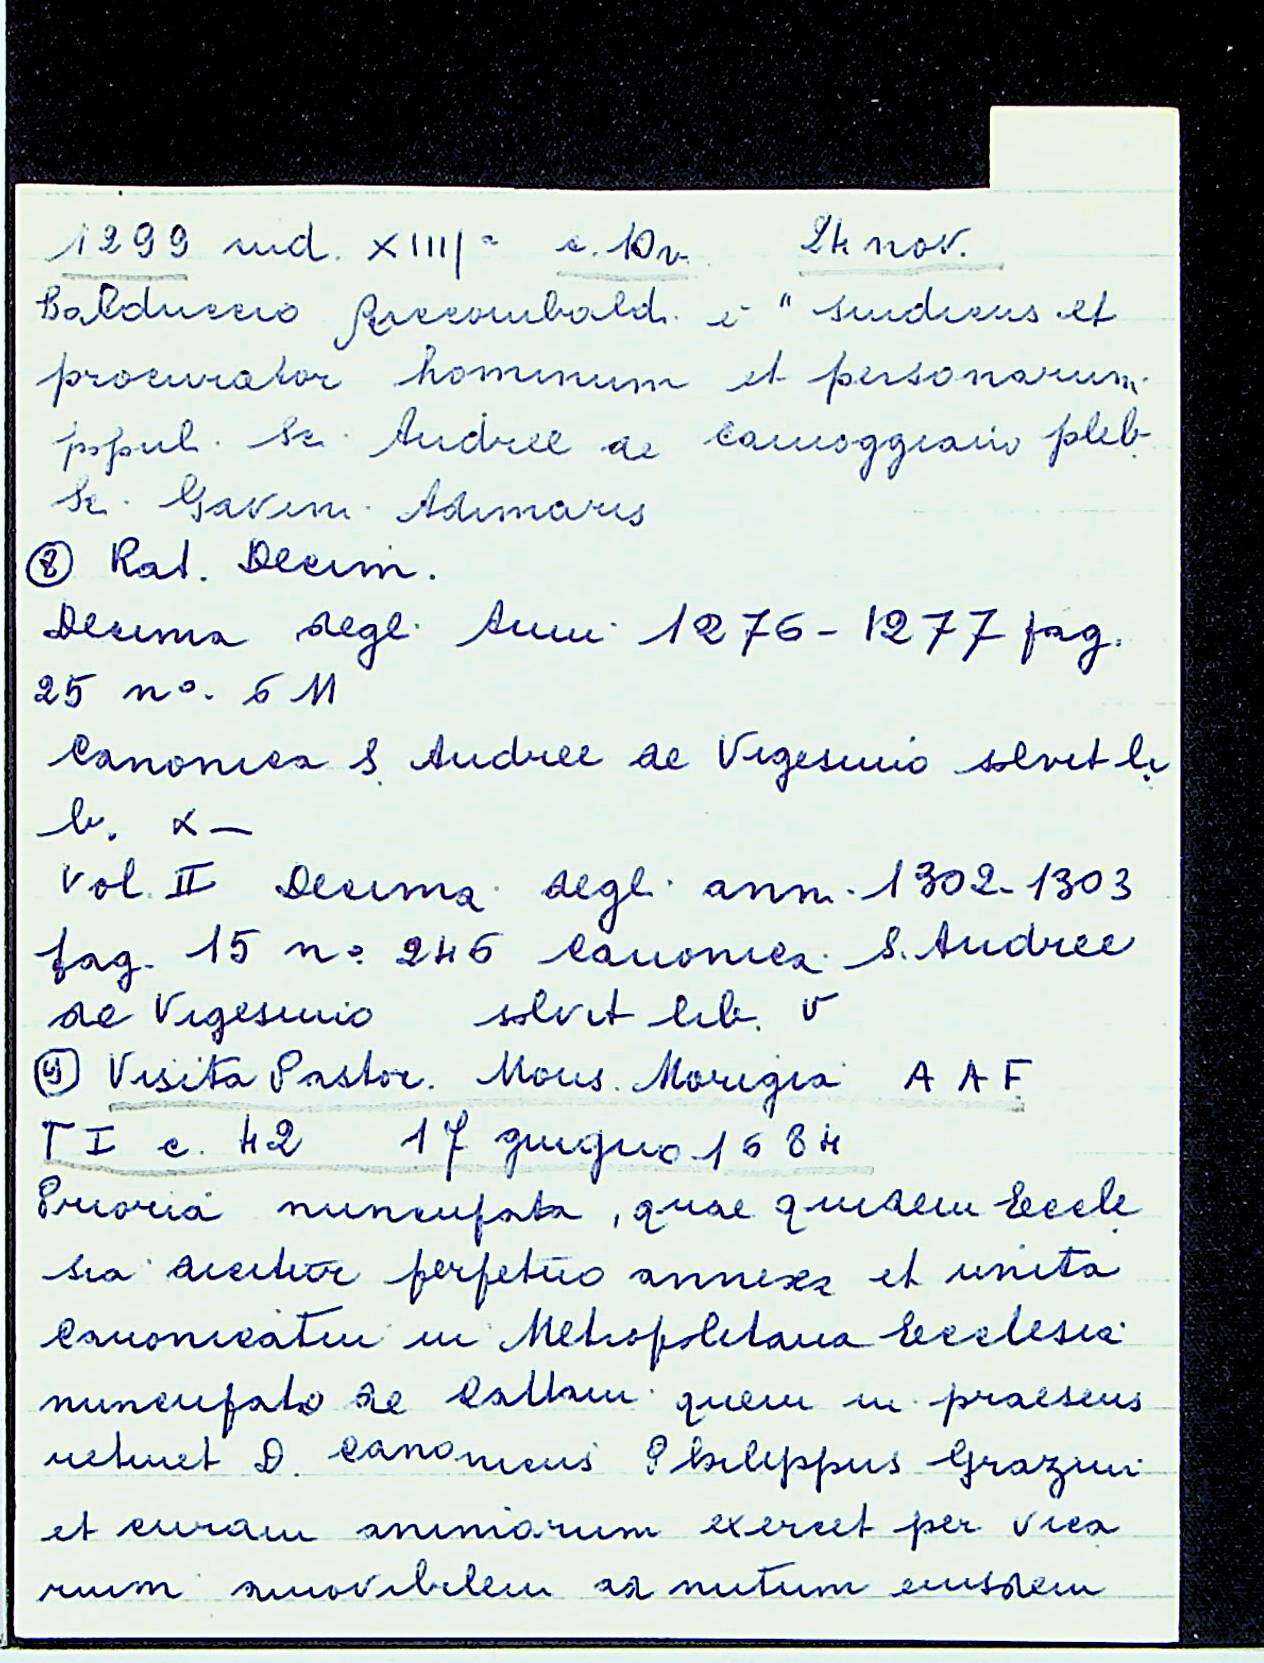 1299 ind. XIIII a c. 10v. 24 nov.
Balduccio è "sindicus et
procurator hominum et personarum
popul. Sc. Andree de Camoggiano pleb.
Sc. Gavini Adimaris
⑧ Rat. Decim.
Decima degli Anni 1276-1277 pag.
25 nº. 611
Canonica S. Andree de Vigesimo solvit li
b. X—
Vol. II Decima degli anni 1302-1303
pag. 15 nº 246 Canonica S. Andree
de Vigesimo solvit lib. V
⑨ Visita Pastor. Mons. Morigia A A F
T I c. 42 17 giugno 1684
Prioria nuncupata, quae quidem Eccle
sia dicitur perpetuo annexa et unita
Canonicatui in Metropolitana Ecclesia
nuncupato de Cattani quem in praesens
retinet D. Canonicus Philippus Grazini
et curam animarum exercet per vica
rium amovibilem ad nutum eiusdem